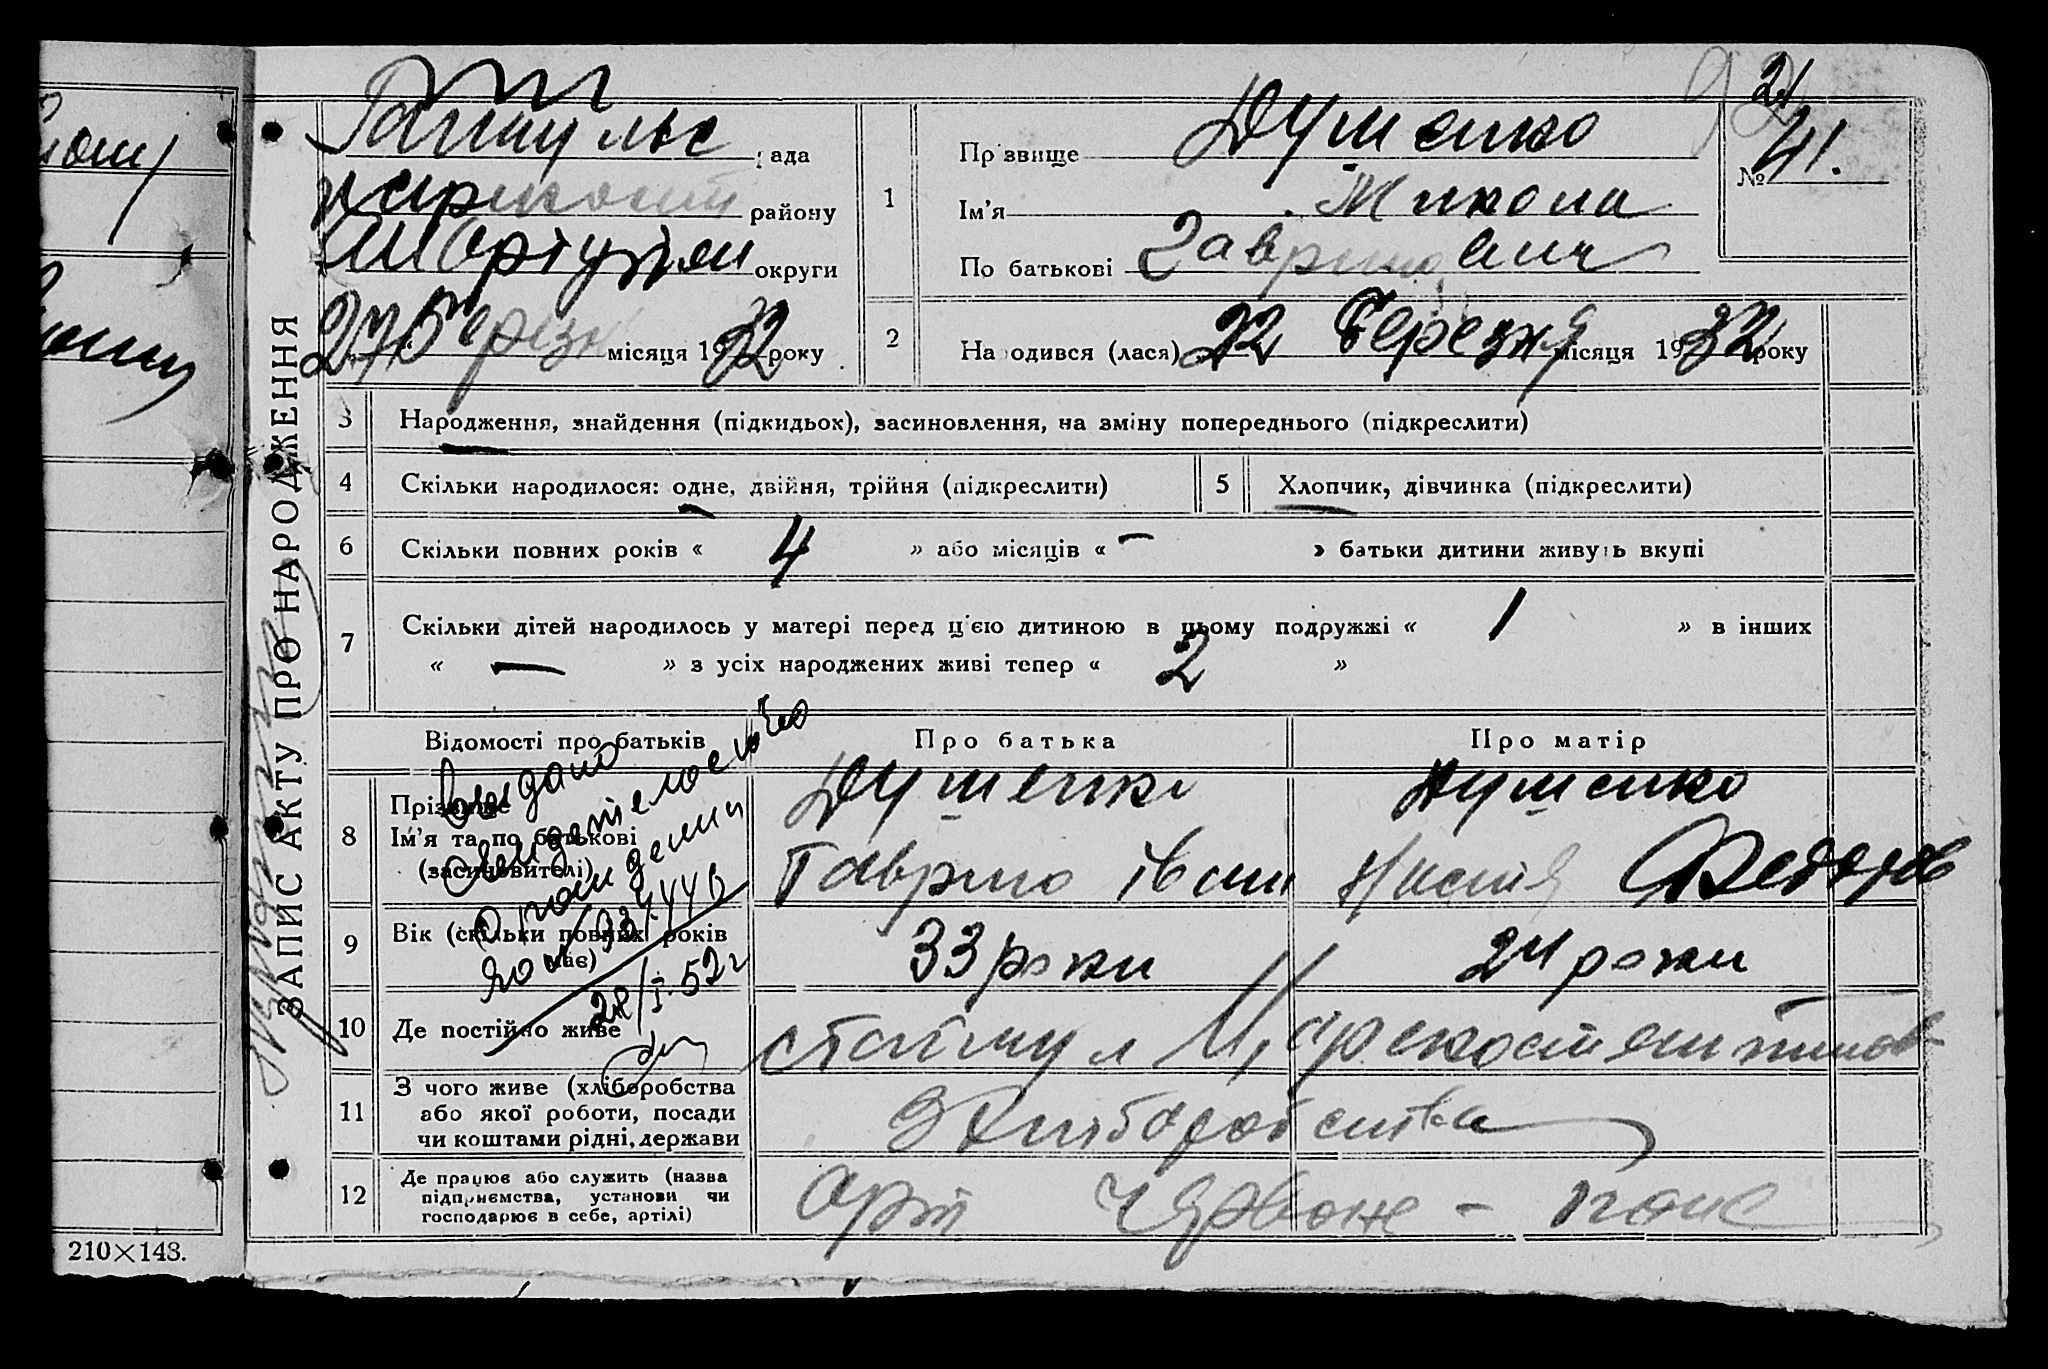 ЗАПИС АКТУ ПРО НАРОДЖЕННЯ
рада
району
округи
27 Березн місяця 1932 року
Прізвище Душенко
1
Ім'я Микола
По батькові Гаврилович
21
№ 41.
2 Народився (лася) 22 Березня місяця 1932 року
3 Народження, знайдення (підкидьох), засиновлення, на зміну попереднього (підкреслити)
4 Скільки народилося: одне, двійня, трійня (підкреслити)
5 Хлопчик, дівчинка (підкреслити)
6 Скільки повних років « 4 » або місяців « – » батьки дитини живуть вкупі
7 Скільки дітей народилось у матері перед ц'єю дитиною в цьому подружжі « 1 » в інших
« — » з усіх народжених живі тепер « 2 »
Відомості про батьків
Про батька
Про матір
8 Прізвище
Ім'я та по батькові
(засиновителі)
Душенко
Гаврило Іван
Душенко
Настя Федоров
Выдано
свидетельство
о рождении
28/I-52г
9 Вік (скільки повних років має)
33 роки
24 роки
10 Де постійно живе
11 З чого живе (хліборобства
або якої роботи, посади
чи коштами рідні, держави
З Хліборобства
12 Де працює або служить (назва
підприємства, установи чи
господарює в себе, артілі)
арт Червоне - поле
210×143.